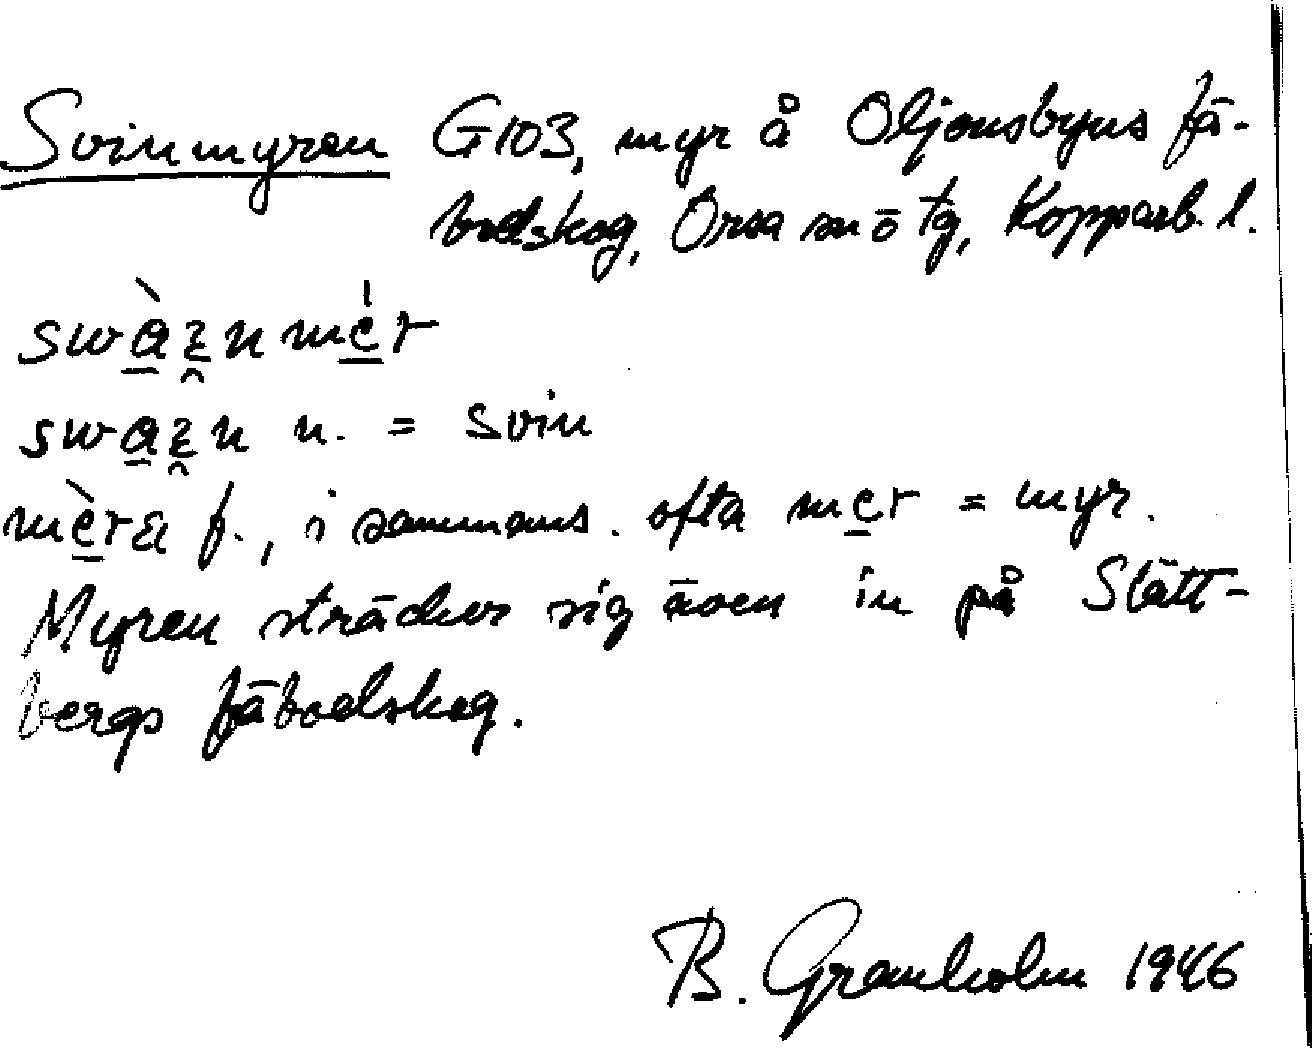 Svinmyren G103, myr å Oljonsbyns fä-
bodskog, Orsa sn ö tg, Kopparb. l.
swà̠ɛ̯n me̠̍r
swa̠ɛ̯n n. = svin
mè̠ra f., i sammans. ofta me̠r = myr.
Myren sträcker sig även in på Slätt-
bergs fäbodskog.
B. Granholm 1946